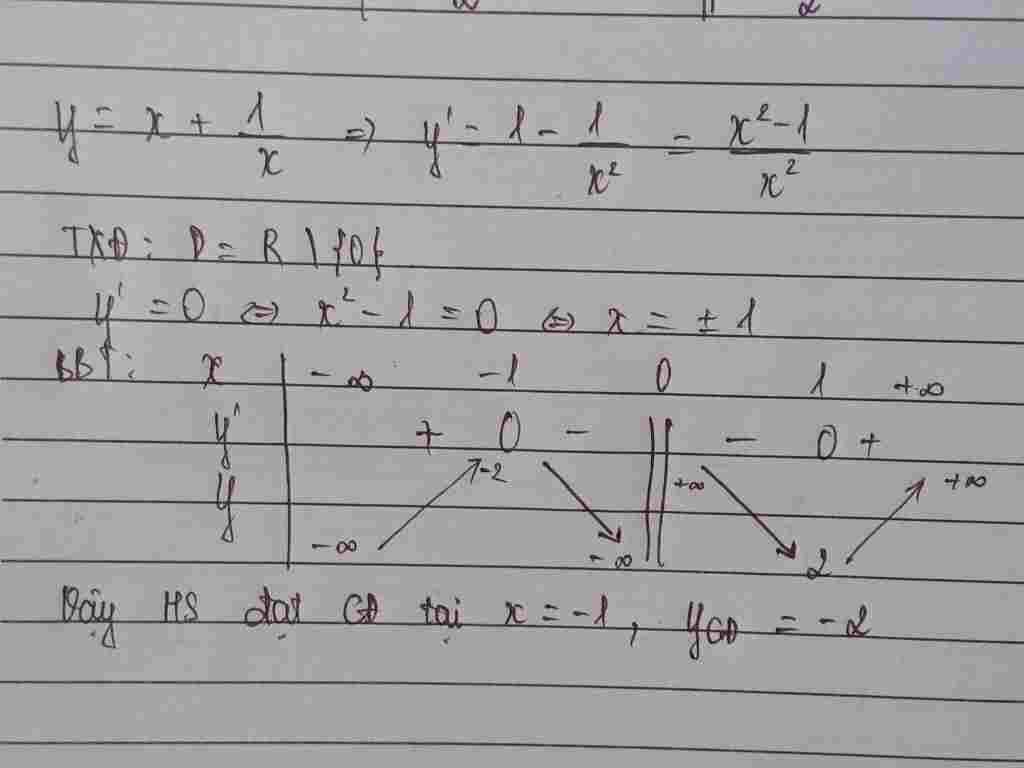 y = x + 1/x => y' = 1 - 1/x² = x²-1/x²
TXĐ: D = R \ {0}
y' = 0 <=> x² - 1 = 0 <=> x = ± 1
BBT: x -∞ -1 0 1 +∞
y' + 0 - || - 0 +
y -∞ -2 -∞ +∞ 2 +∞
Vậy HS đạt CĐ tại x = -1, yCĐ = -2